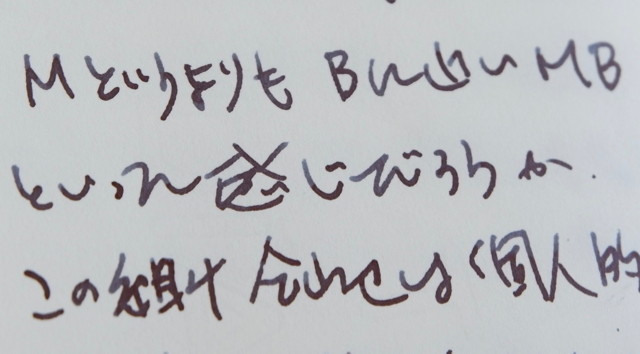 Mというよりも Bに近い MB
といった感じだろうか.
この組み合わせは 個人的